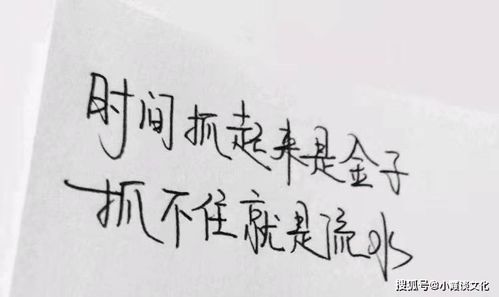 时间抓起来是金子
抓不住就是流水
搜狐号@小嘴谈文化